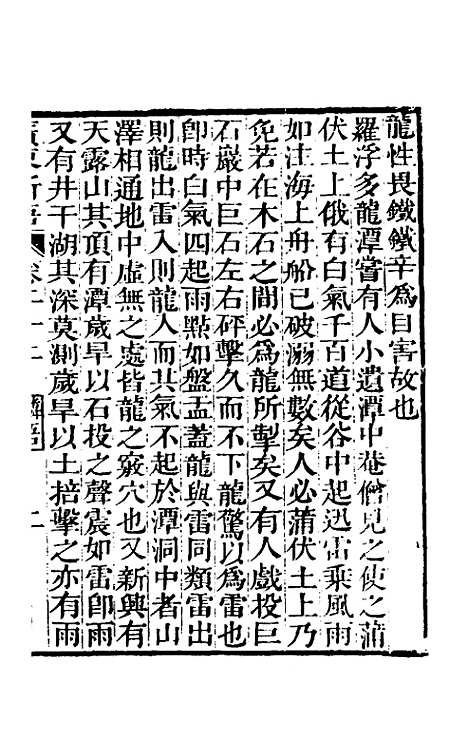 龍性畏鐵鐵辛爲目害故也
羅浮多龍潭嘗有人小遺潭中菴僧見之使之蒲
伏土上俄有白氣千百道從谷中起迅雷乘風雨
如注海上舟船已破溺無數矣人必蒲伏土上乃
免若在木石之間必爲龍所掣矣又有人戲投巨
石巖中巨石左右砰擊久而不下龍驚以爲雷也
卽時白氣四起雨點如盤盂蓋龍與雷同類雷出
則龍出雷入則龍入而其氣不起於潭洞中者山
澤相通地中虛無之處皆龍之竅穴也又新興有
天露山其頂有潭歲旱以石投之聲震如雷卽雨
又有井干湖其深莫測歲旱以土掊擊之亦有雨
廣東新語 卷二十二 鱗語 二